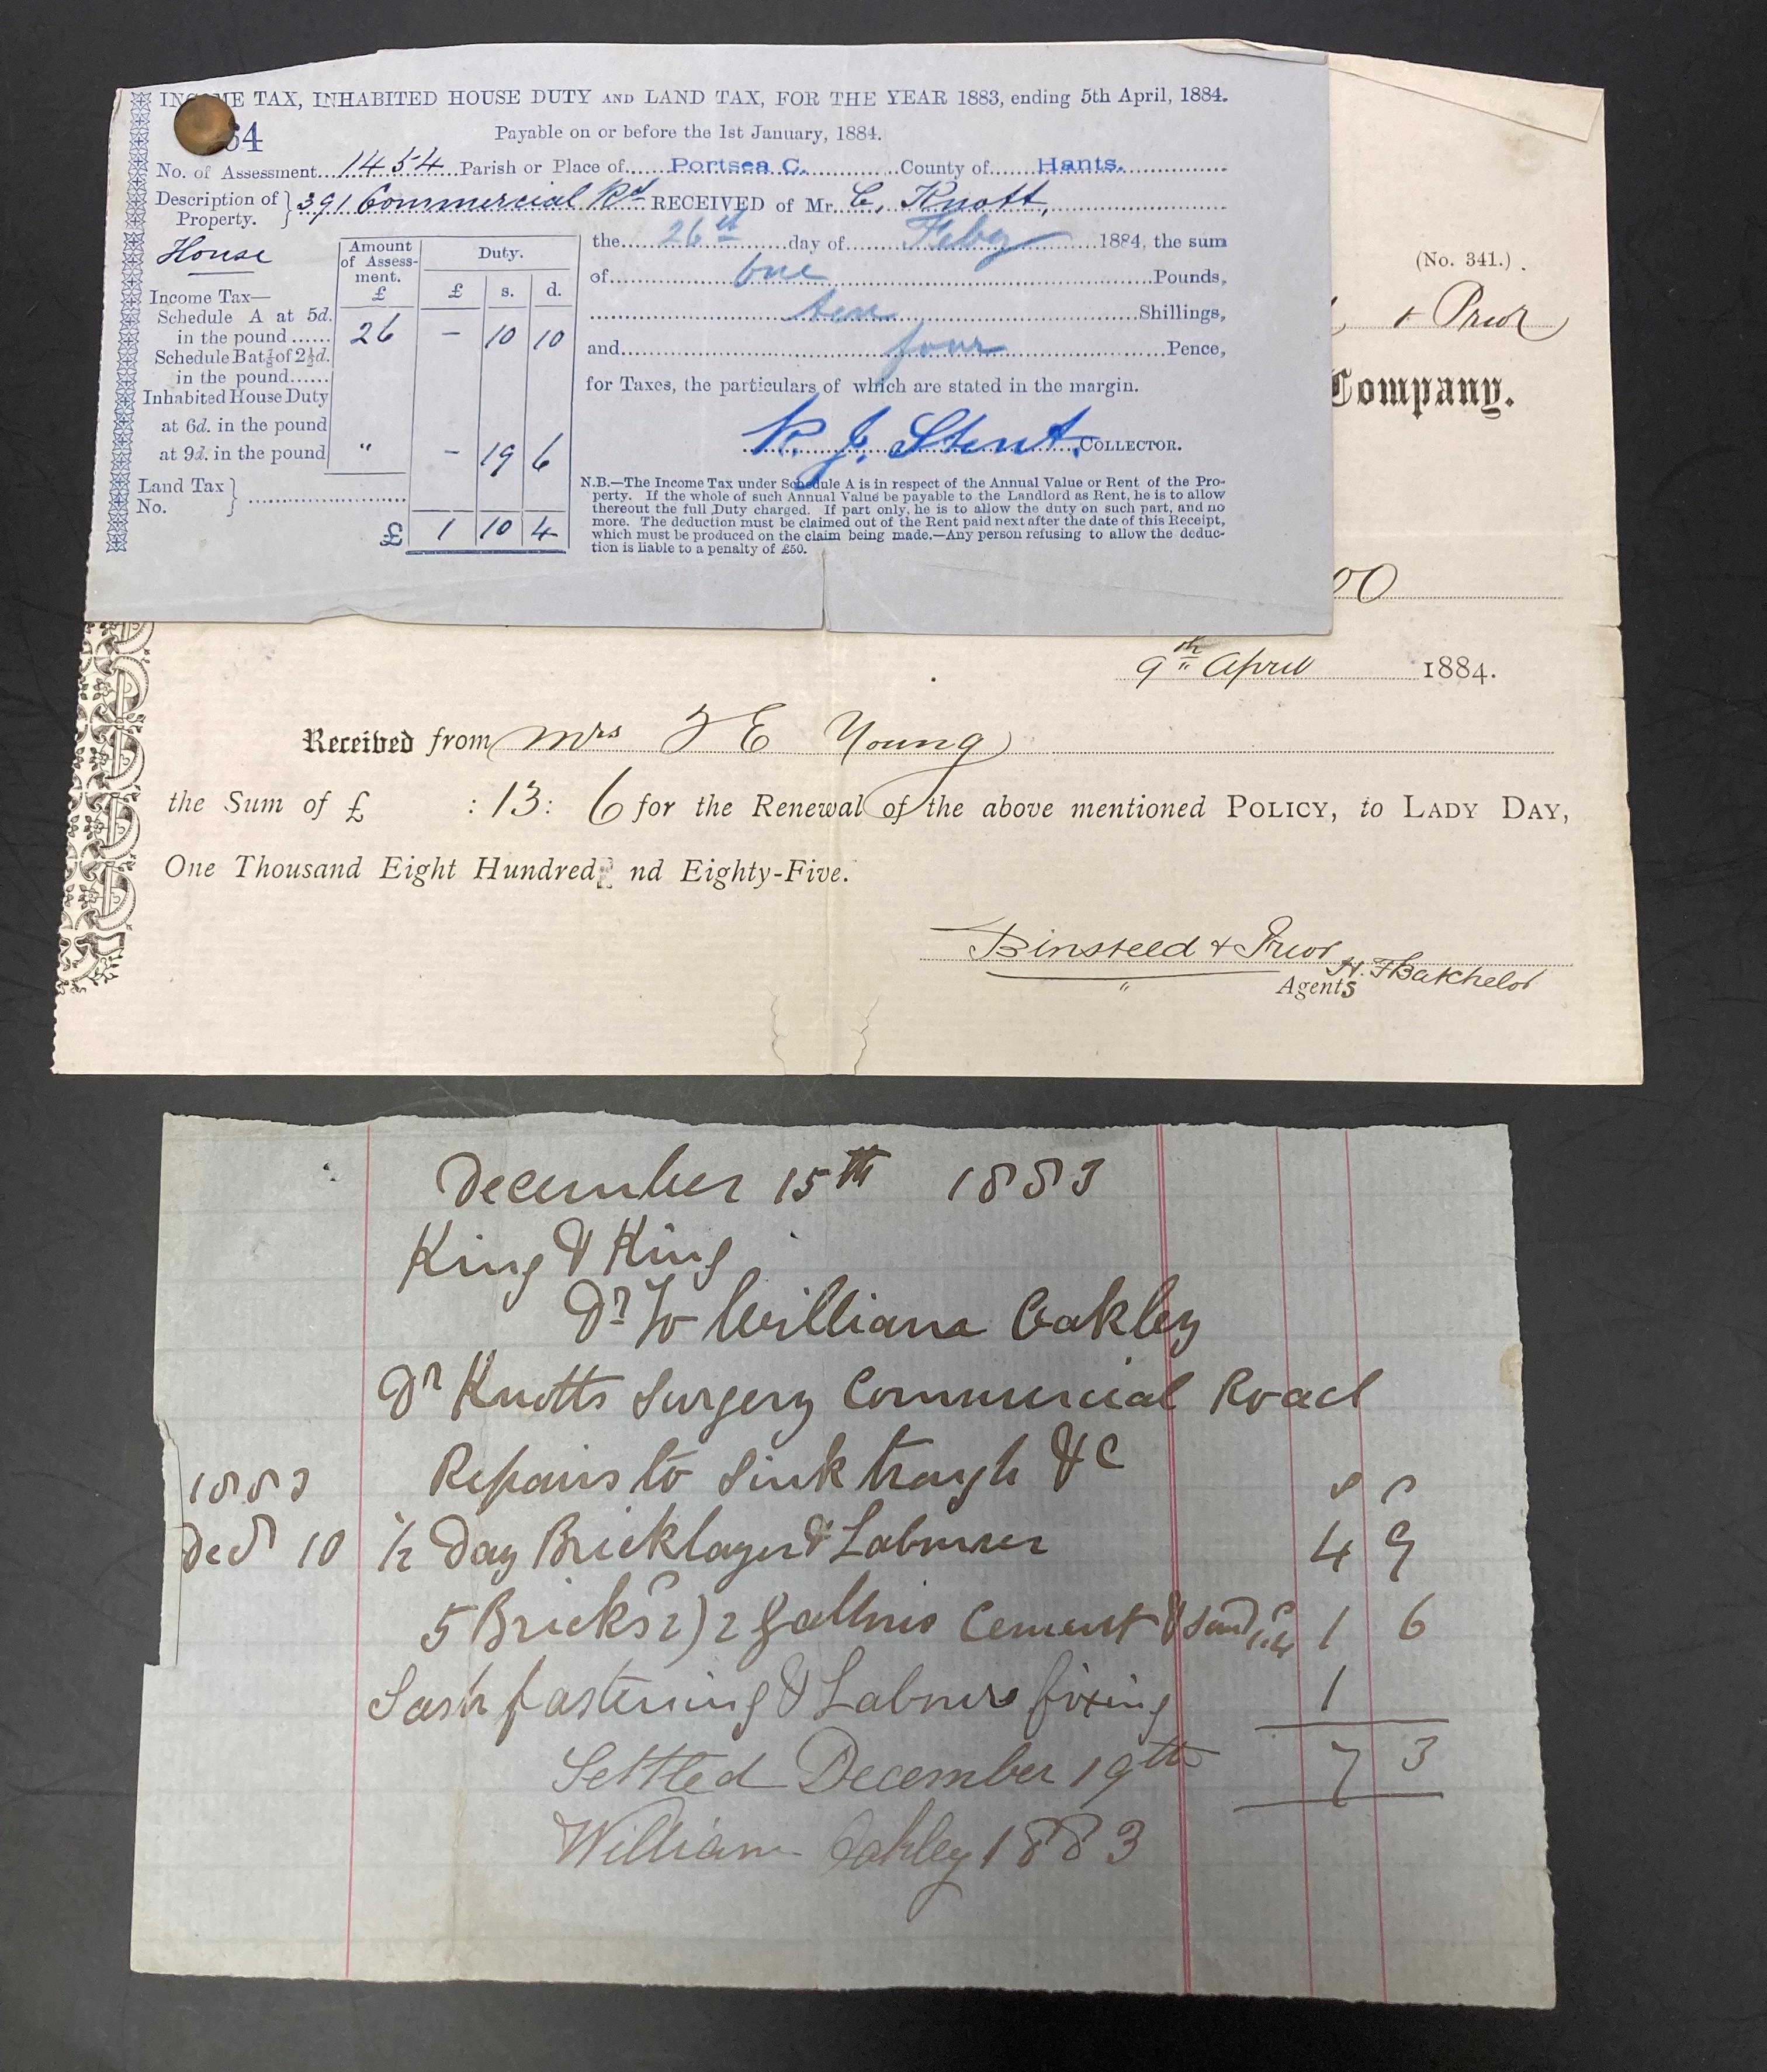 INCOME TAX, INHABITED HOUSE DUTY AND LAND TAX, FOR THE YEAR 1883, ending 5th April, 1884.
64
Payable on or before the 1st January, 1884.
No. of Assessment 1454 Parish or Place of Portsea C. County of Hants.
Description of Property. } 391 Commercial Rd RECEIVED of Mr. C, Knott,
House
the 26th day of Feby 1884, the sum
of one Pounds,
ten Shillings,
and four Pence,
for Taxes, the particulars of which are stated in the margin.
R. J. Stent. COLLECTOR.
Amount of Assessment. Duty.
£ £ s. d.
Income Tax—
Schedule A at 5d.
in the pound 26 – 10 10
Schedule B at ½ of 2½d.
in the pound
Inhabited House Duty
at 6d. in the pound
at 9d. in the pound " – 19 6
Land Tax }
No.
£ 1 10 4
N.B.—The Income Tax under Schedule A is in respect of the Annual Value or Rent of the Pro-
perty. If the whole of such Annual Value be payable to the Landlord as Rent, he is to allow
thereout the full Duty charged. If part only, he is to allow the duty on such part, and no
more. The deduction must be claimed out of the Rent paid next after the date of this Receipt,
which must be produced on the claim being made.—Any person refusing to allow the deduc-
tion is liable to a penalty of £50.
(No. 341.)
+ Prior
Company.
00
9th April 1884.
Received from Mrs F E Young
the Sum of £ : 13 : 6 for the Renewal of the above mentioned POLICY, to LADY DAY,
One Thousand Eight Hundred nd Eighty-Five.
Binsteed + Prior
Agents H. F Batchelor
December 15th 1883
King & King
Dr To William Oakley
Dr Knotts Surgery Commercial Road
1883 Repairs to Sink trough &C s d
Decr 10 1/2 Day Bricklayer & Labourer 4 9
5 Bricks 2) 2 Gallons Cement & Sand 1/4 1 6
Sash fastening & Labour fixing 1
Settled December 19th 7 3
William Oakley 1883